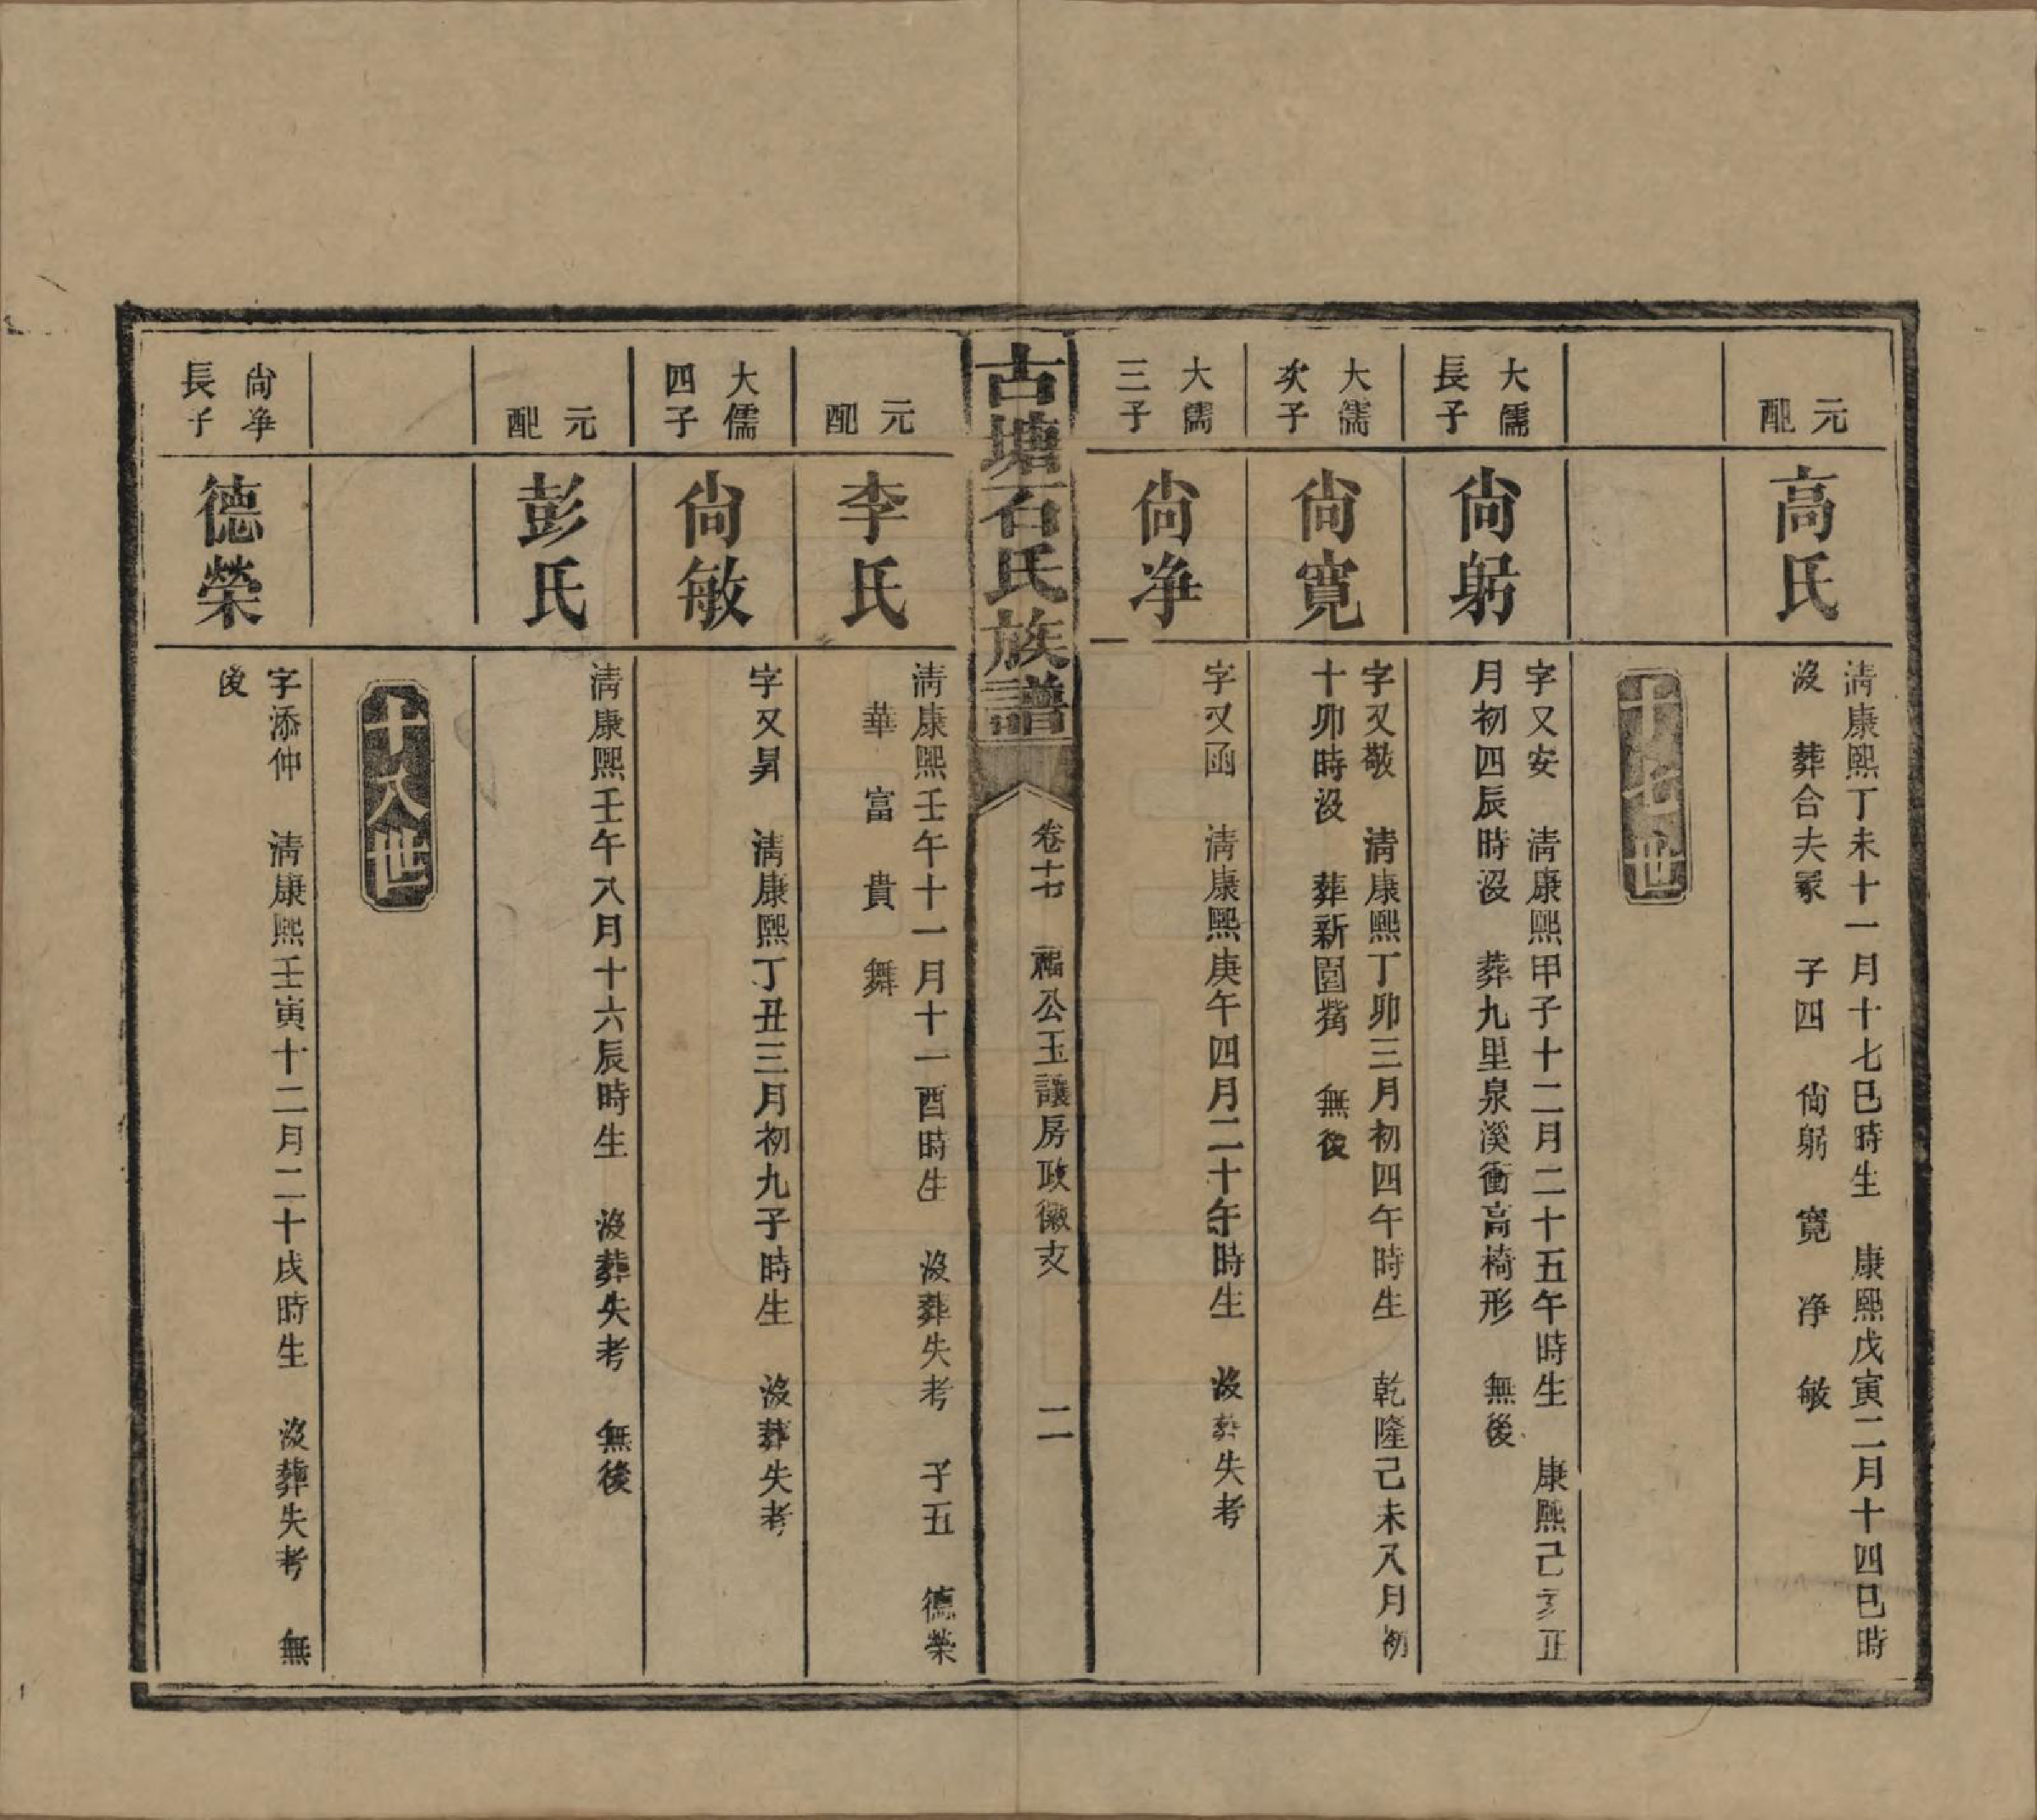 元配
高氏
淸康熙丁未十一月十七巳時生　康熙戊寅二月十四巳時
沒　葬合夫冢　子四　尙躬　寬　净　敏
十七世
大儒
長子
尙躬
字又安　淸康熙甲子十二月二十五午時生　康熙己亥正
月初四辰時沒　葬九里泉溪衝高椅形　無後
大儒
次子
尙寬
字又敬　淸康熙丁卯三月初四午時生　乾隆己未八月初
十卯時沒　葬新圍觜　無後
大儒
三子
尙净
字又函　淸康熙庚午四月二十午時生　沒葬失考
古塘石氏族譜
卷十七　福公玉讓房政徽支　二
元配
李氏
淸康熙壬午十一月十一酉時生　沒葬失考　子五　德榮
華　富　貴　舞
大儒
四子
尙敏
字又昇　淸康熙丁丑三月初九子時生　沒葬失考
元配
彭氏
淸康熙壬午八月十六辰時生　沒葬失考　無後
十八世
尙净
長子
德榮
字添仲　淸康熙壬寅十二月二十戌時生　沒葬失考　無
後